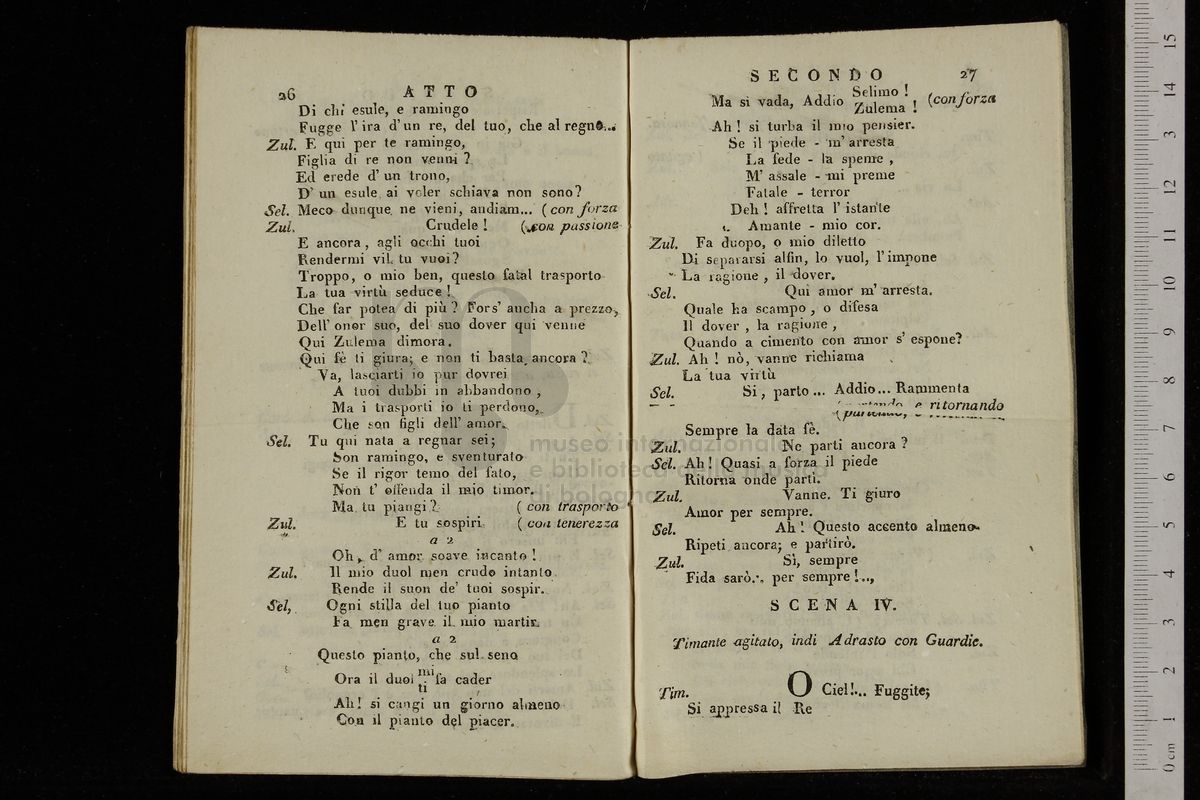 26 ATTO
Di chi esule, e ramingo
Fugge l'ira d'un re, del tuo, che al regno...
Zul. E qui per te ramingo,
Figlia di re non venni?
Ed erede d'un trono,
D'un esule ai voler schiava non sono?
Sel. Meco dunque ne vieni, andiam... (con forza
Zul. Crudele! (con passione
E ancora, agli occhi tuoi
Rendermi vil tu vuoi?
Troppo, o mio ben, questo fatal trasporto
La tua virtù seduce!
Che far potea di più? Fors' ancha a prezzo,
Dell' onor suo, del suo dover qui venne
Qui Zulema dimora.
Qui fè ti giura; e non ti basta ancora?
Va, lasciarti io pur dovrei
A tuoi dubbi in abbandono,
Ma i trasporti io ti perdono,
Che son figli dell' amor.
Sel. Tu qui nata a regnar sei;
Son ramingo, e sventurato
Se il rigor temo del fato,
Non t' offenda il mio timor.
Ma tu piangi? (con trasporto
Zul. E tu sospiri (con tenerezza
a 2
Oh, d' amor soave incanto!
Zul. Il mio duol men crudo intanto
Rende il suon de' tuoi sospir.
Sel, Ogni stilla del tuo pianto
Fa men grave il mio martir.
a 2
Questo pianto, che sul seno
Ora il duol mi fa cader
ti
Ah! si cangi un giorno almeno
Con il pianto del piacer.
SECONDO 27
Ma si vada, Addio Selimo! (con forza
Zulema!
Ah! si turba il mio pensier.
Se il piede - m' arresta
La fede - la speme,
M' assale - mi preme
Fatale - terror
Deh! affretta l' istante
Amante - mio cor.
Zul. Fa duopo, o mio diletto
Di separarsi alfin, lo vuol, l'impone
La ragione, il dover.
Sel. Qui amor m' arresta.
Quale ha scampo, o difesa
Il dover, la ragione,
Quando a cimento con amor s' espone?
Zul. Ah! nò, vanne richiama
La tua virtù
Sel. Si, parto... Addio... Rammenta
(partendo, e ritornando
Sempre la data fè.
Zul. Ne parti ancora?
Sel. Ah! Quasi a forza il piede
Ritorna onde partì.
Zul. Vanne. Ti giuro
Amor per sempre.
Sel. Ah! Questo accento almeno
Ripeti ancora; e partirò.
Zul. Sì, sempre
Fida sarò... per sempre!...
SCENA IV.
Timante agitato, indi Adrasto con Guardie.
Tim. O Ciel!... Fuggite;
Si appressa il Re
museo internazionale
e biblioteca della musica
di bologna
0 cm 1 2 3 4 5 6 7 8 9 10 11 12 13 14 15